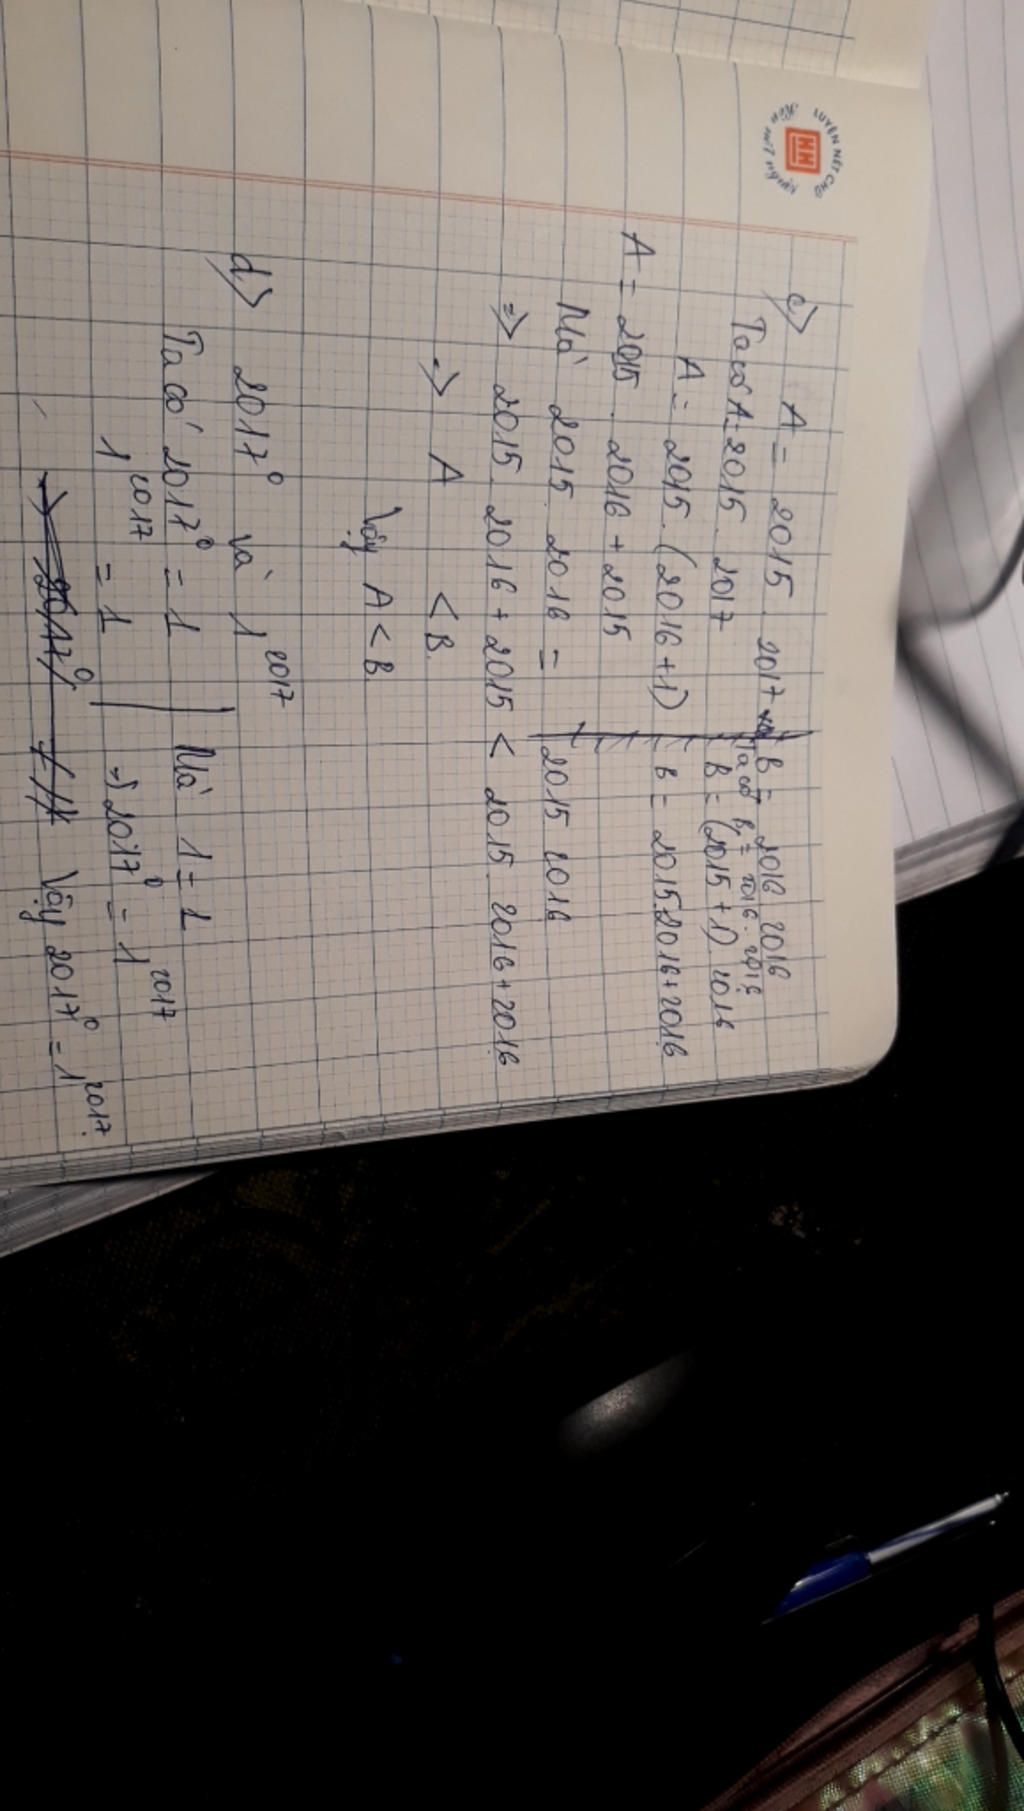 LUYỆN NÉT CHỮ
Rèn nết người
c) A = 2015 . 2017 và B = 2016 . 2016
Ta có A = 2015 . 2017
A = 2015 . (2016 + 1)
A = 2015 . 2016 + 2015
Ta có B = 2016 . 2016
B = (2015 + 1) . 2016
B = 2015.2016 + 2016
Mà 2015 . 2016 = 2015 . 2016
=> 2015 . 2016 + 2015 < 2015 . 2016 + 2016
=> A < B.
Vậy A < B
d) 2017⁰ và 1²⁰¹⁷
Ta có 2017⁰ = 1
1²⁰¹⁷ = 1
Mà 1 = 1
=> 2017⁰ = 1²⁰¹⁷
Vậy 2017⁰ = 1²⁰¹⁷.